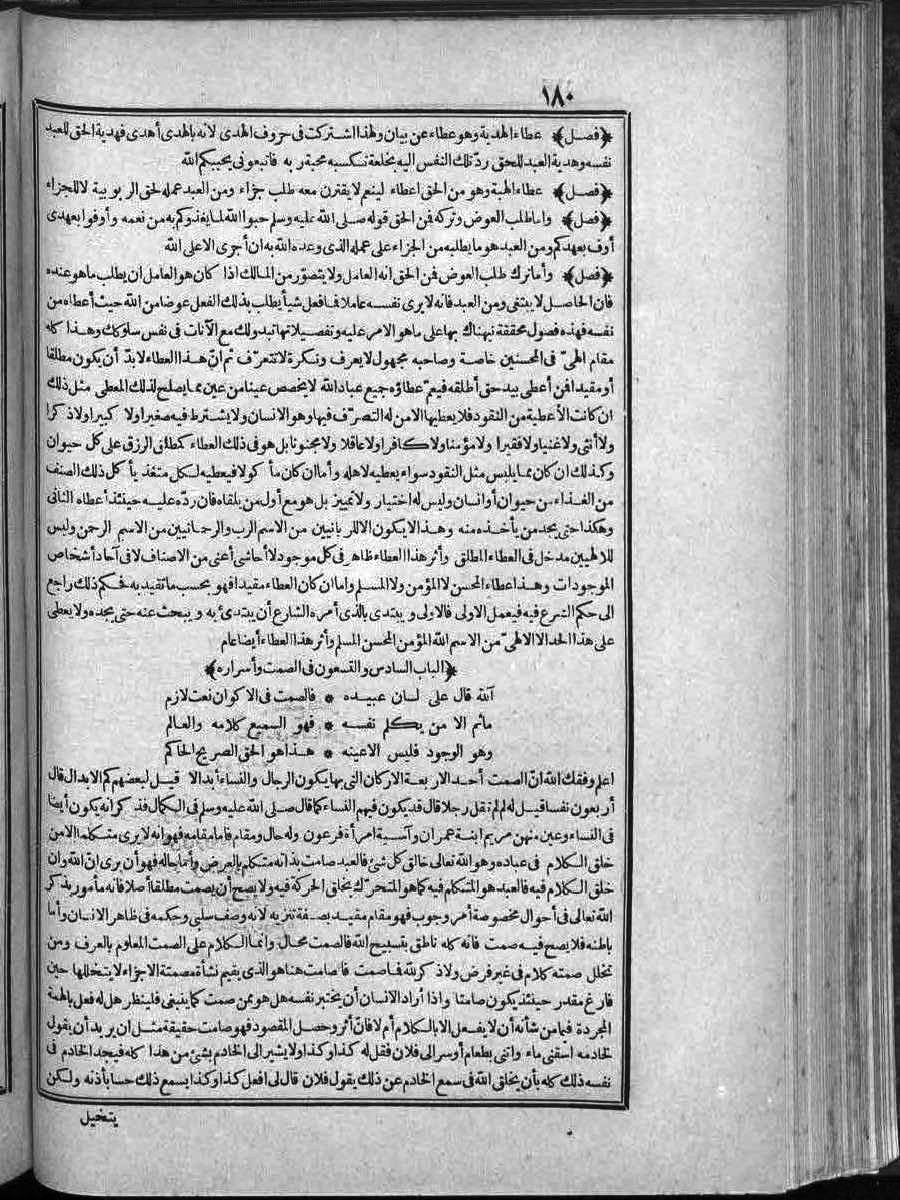 ١٨٠
﴿فصل﴾ عطاء الهدية وهو عطاء عن بيان ولهذا اشتركت فى حروف الهدى لانه بالهدى أهدى فهدية الحق للعبد
نفسه وهدية العبد للحق ردّ تلك النفس اليه بخلعة تكسبه محبة ربه فاتبعونى يحببكم الله
﴿فصل﴾ عطاء الهبة وهو من الحق اعطاء لينعم لا يقترن معه طلب جزاء ومن العبد عمله لحق الربوبية لا للجزاء
﴿فصل﴾ واما طلب العوض وتركه فن الحق قوله صلى الله عليه وسلم حبوا الله لما يغذوكم به من نعمه وأوفوا بعهدى
أوف بعهدكم ومن العبد هو ما يطلبه من الجزاء على عمله الذى وعده الله به ان أجرى الاعلى الله
﴿فصل﴾ وأما ترك طلب العوض فن الحق انه العامل ولا يتصوّر من المالك اذا كان هو العامل ان يطلب ما هو عنده
فان الحاصل لا يبتغى ومن العبد فانه لا يرى نفسه عاملا فافعل شيأ يطلب بذلك الفعل عوضا من الله حيث أعطاه من
نفسه فهذه فصول محققة نبهناك بها على ماهو الامر عليه وتفصيلاتها تبدو لك مع الآنات فى نفس سلوكك وهذا كله
مقام الهىّ فى المحسنين خاصة وصاحبه مجهول لا يعرف ونكرة لا تتعرّف ثم انّ هذا العطاء لا بدّ أن يكون مطلقا
أو مقيدا فن أعطى بيد حق أطلقه فيعمّ عطاؤه جميع عباد الله لا يخصص عينا من عين مما يصلح لذلك المعطى مثل ذلك
ان كانت الأعطية من النقود فلا يعطيها الا من له التصرّف فيها وهو الانسان ولا يشترط فيه صغيرا ولا كبيرا ولا ذكرا
ولا أنثى ولا غنيا ولا فقيرا ولا مؤمنا ولا كافرا ولا عاقلا ولا مجنونا بل هو فى ذلك العطاء كمطلق الرزق على كل حيوان
وكذلك ان كان مما يلبس مثل النقود سواء يعطيه لاهله وأما ان كان مأكولا فيعطيه لكل متغذ يأكل ذلك الصنف
من الغذاء من حيوان أو انسان وليس له اختيار ولا تمييز بل هو مع أول من يلقاه فان ردّه عليه حينئذ أعطاه الثانى
وهكذا حتى يجد من يأخذه منه وهذا لا يكون الا للربانيين من الاسم الرب والرحمانيين من الاسم الرحمن وليس
للالهيين مدخل فى العطاء المطلق وأثر هذا العطاء ظاهر فى كل موجود لا أحاشى أعنى من الاصناف لا فى آحاد أشخاص
الموجودات وهذا عطاء المحسن لا المؤمن ولا المسلم واما ان كان العطاء مقيدا فهو بحسب ما تقيد به فحكم ذلك راجع
الى حكم الشرع فيه فيعمل الاولى فالاولى و يبتدى بالذى أمره الشارع أن يبتدئ به و يبحث عنه حتى يجده ولا يعطى
على هذا الحد الا الالهىّ من الاسم الله المؤمن المحسن المسلم وأثر هذا العطاء أيضا عام
﴿الباب السادس والتسعون فى الصمت وأسراره﴾
آلله قال على لسان عبيده * فالصمت فى الاكوان نعت لازم
ماثم الا من يكلم نفسه * فهو السميع كلامه والعالم
وهو الوجود فليس الاعينه * هذا هو الحق الصريح الحاكم
اعلم وفقك الله انّ الصمت أحد الاربعة الاركان التى بها يكون الرجال والنساء أبدالا قيل لبعضهم كم الابدال قال
أربعون نفسا قيل له لم لم تقل رجلا قال قد يكون فيهم النساء كما قال صلى الله عليه وسلم فى الكمال فذكر انه يكون أيضا
فى النساء وعين منهن مريم ابنة عمران وآسية امرأة فرعون وله حال ومقام فاما مقامه فهو انه لا يرى متكلما الا من
خلق الكلام فى عباده وهو الله تعالى خالق كل شئ فالعبد صامت بذاته متكلم بالعرض وأما حاله فهو أن يرى انّ الله وان
خلق الكلام فيه فالعبد هو المتكلم فيه كما هو المتحرّك بخلق الحركة فيه ولا يصح أن يصمت مطلقا أصلا فانه مأمور بذكر
الله تعالى فى أحوال مخصوصة أمر وجوب فهو مقام مقيد بصفة تنزيه لانه وصف سلبى وحكمه فى ظاهر الانسان وأما
باطنه فلا يصح فيه صمت فانه كله ناطق بتسبيح الله فالصمت محال وانما الكلام على الصمت المعلوم بالعرف ومن
تخلل صمته كلام فى غير فرض ولا ذكر لله فما صمت فالصامت هنا هو الذى يقيم نشأة مصمتة الاجزاء لا يتخللها حين
فارغ مقدر حينئذ يكون صامتا واذا أراد الانسان أن يختبر نفسه هل هو ممن صمت كما ينبغى فلينظر هل له فعل بالهمة
المجردة فيما من شأنه أن لا يفعل الا بالكلام أم لا فانّ أثر وحصل المقصود فهو صامت حقيقة مثل ان يريد أن يقول
لخادمه اسقنى ماء واتنى بطعام أوسر الى فلان فقل له كذا وكذا ولا يشير الى الخادم بشئ من هذا كله فيجد الخادم فى
نفسه ذلك كله بأن يخلق الله فى سمع الخادم عن ذلك يقول فلان قال لى افعل كذا وكذا يسمع ذلك حسا بأذنه ولكن
يتخيل